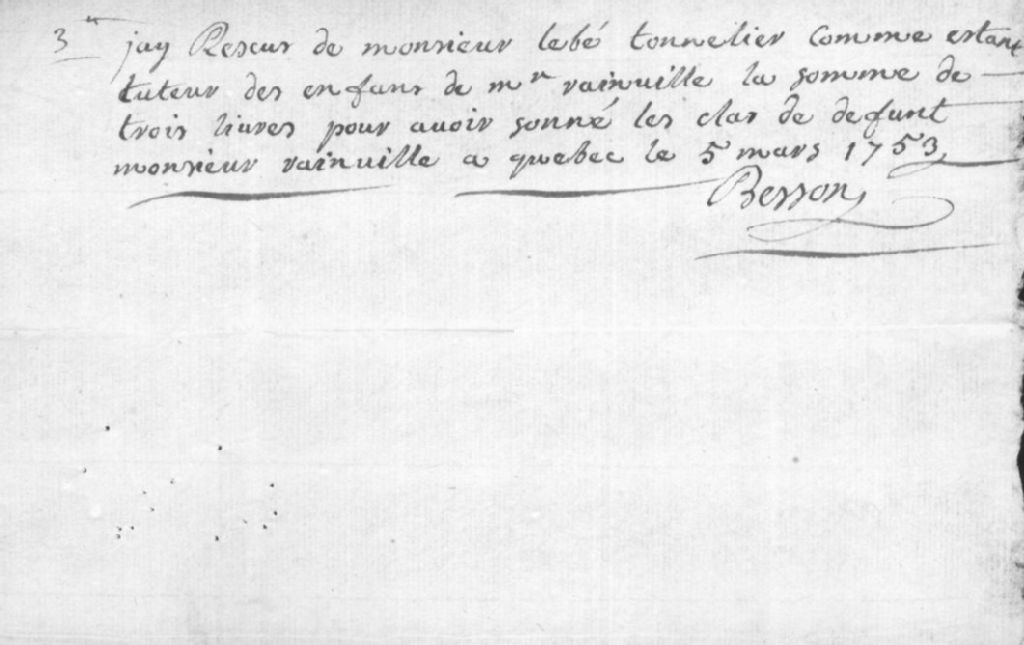 3ᵗᵗ jay Reseus de monsieur lebé tonnelier Comme estant
tuteur des enfans de mʳ rainuille la somme de
trois liures pour auoir sonné les clas de defunt
monsieur rainuille a quebec le 5 mars 1753
Besson